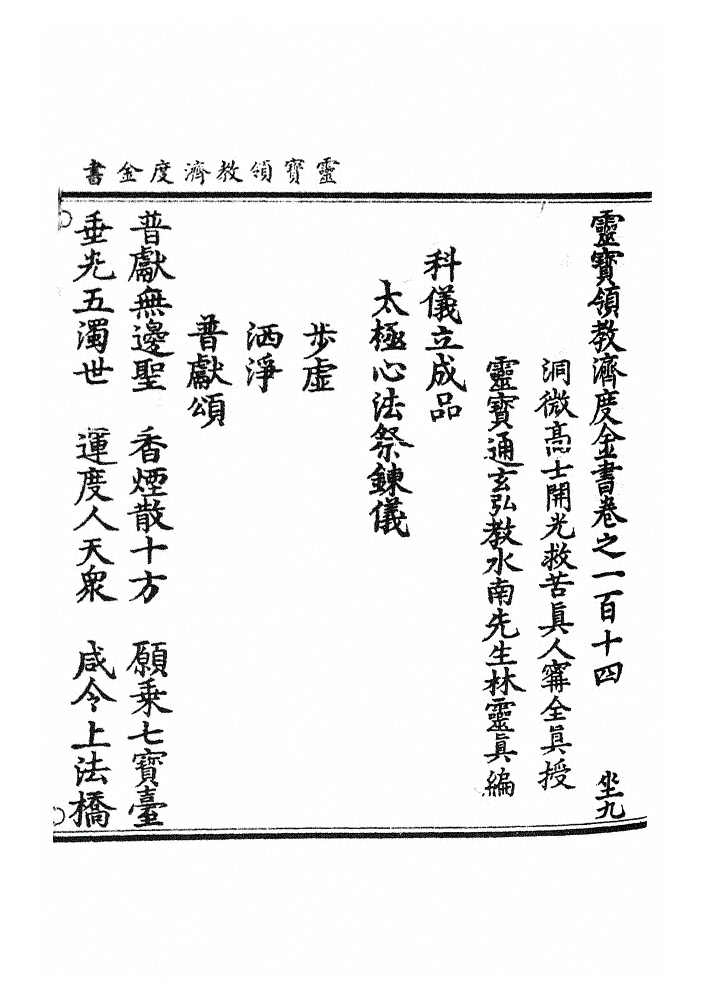 靈寶領教濟度金書
靈寶領教濟度金書卷之一百十四 坐九
洞微高士開光救苦眞人甯全眞授
靈寶通玄弘教水南先生林靈眞編
科儀立成品
太極心法祭鍊儀
步虛
洒淨
普獻頌
普獻無邊聖 香煙散十方 願乘七寶臺
垂光五濁世 運度人天衆 咸令上法橋